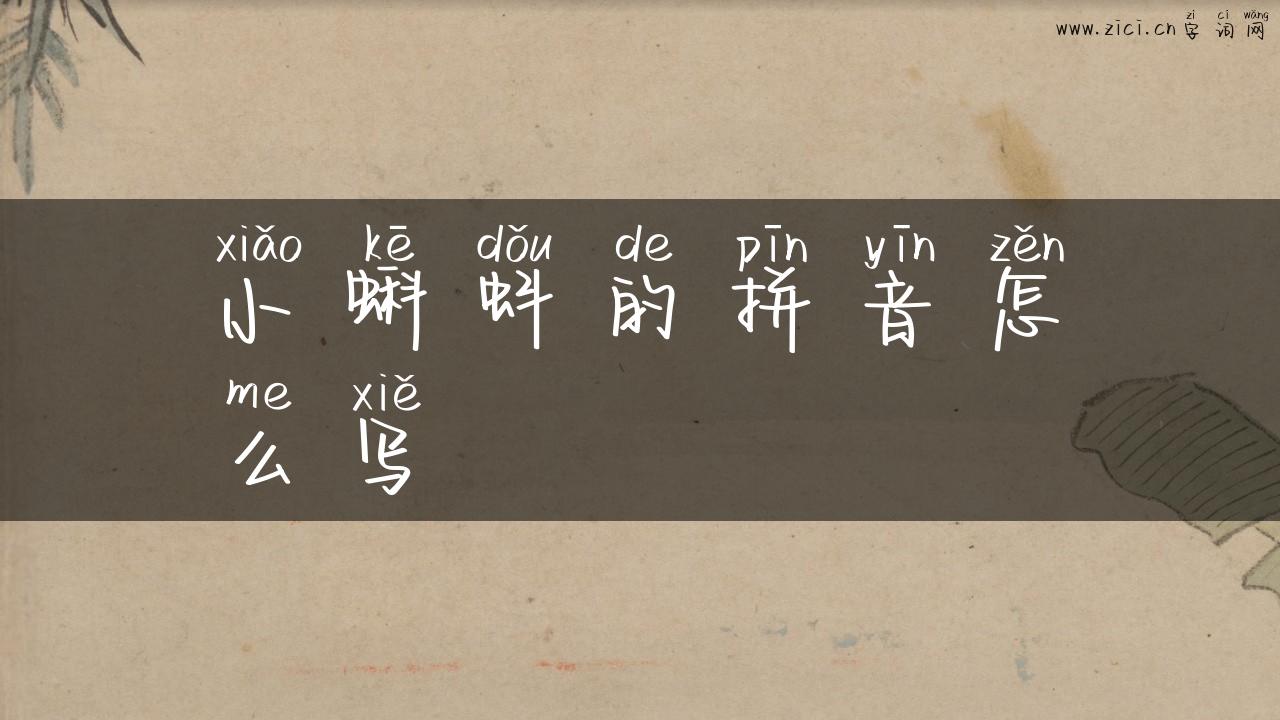 zì cí wǎng
www.zici.cn 字词网
xiǎo kē dǒu de pīn yīn zěn
小蝌蚪的拼音怎
me xiě
么写